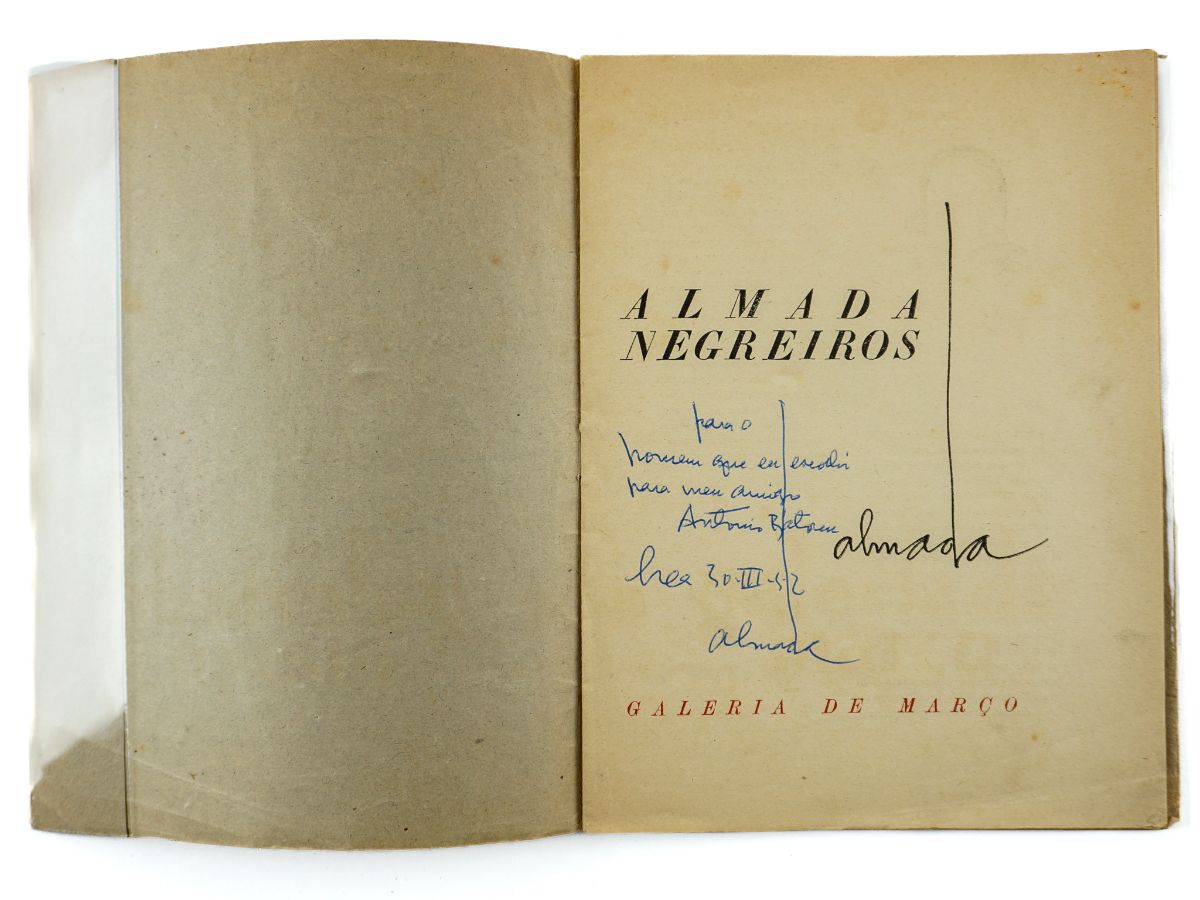 ALMADA
NEGREIROS
para o
homem que eu escolhi
para meu amigo
Antonio
almada
30-III-52
almada
GALERIA DE MARÇO